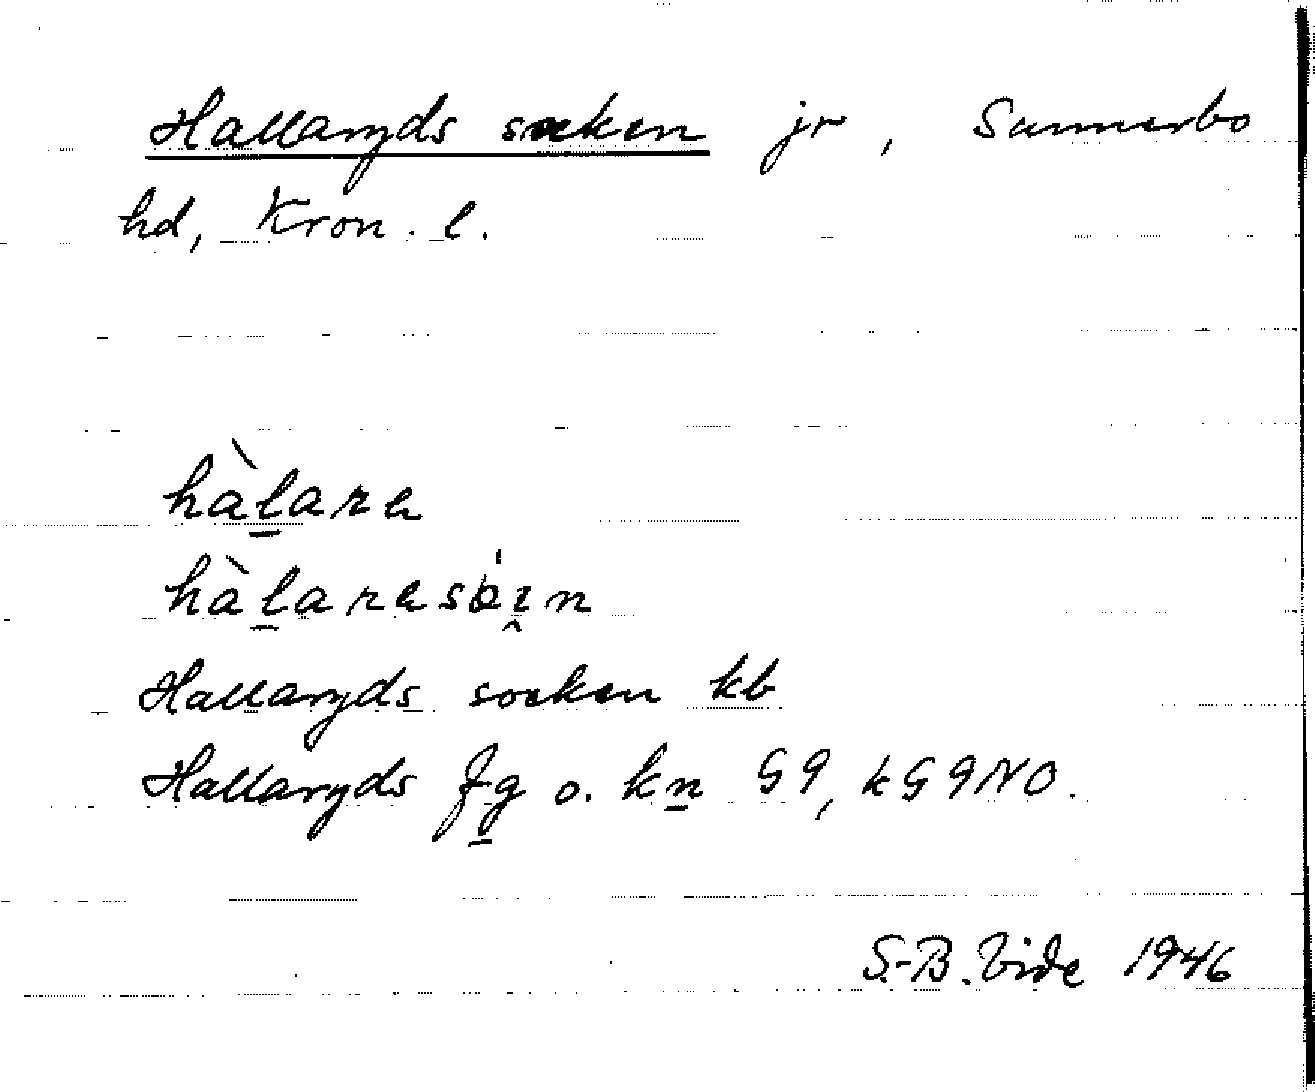 Hallaryds socken jr, Sunnerbo
hd, Kron. l.
hàlare
Hallaryds socken kb
Hallaryds fg o. kn G9, kG9NO.
S.-B. Vide 1946